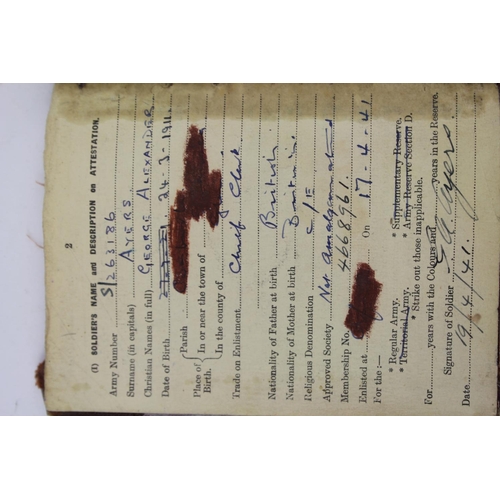 2
(I) SOLDIER'S NAME and DESCRIPTION on ATTESTATION.
Army Number S/263186
Surname (in capitals) AYERS
Christian Names (in full) GEORGE ALEXANDER
Date of Birth 24-3-1911.
Place of Birth. { Parish
In or near the town of
In the county of
Trade on Enlistment. Chief Clerk
Nationality of Father at birth British
Nationality of Mother at birth British.
Religious Denomination C/E
Approved Society Not Amalgamated
Membership No. 4668961.
Enlisted at On 17-4-41
For the :—
* Regular Army. * Supplementary Reserve.
* Territorial Army. * Army Reserve Section D.
* Strike out those inapplicable.
For years with the Colours and years in the Reserve.
Signature of Soldier G A Ayers.
Date 19/4/41.